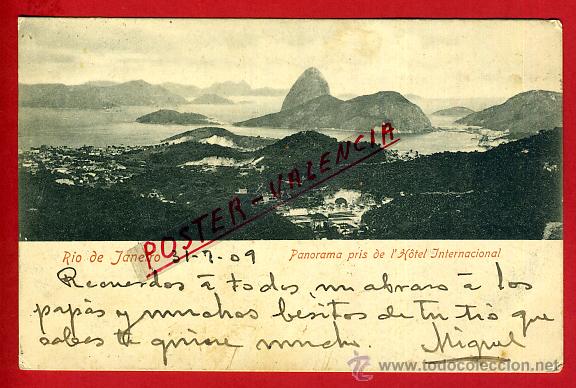 POSTER-VALENCIA
Rio de Janeiro 31-7-09 Panorama pris de l'Hôtel Internacional
Recuerdos á todos, un abrazo á los
papás y muchos besitos de tu tío que
sabes te quiere mucho. Miguel
www.todocoleccion.net